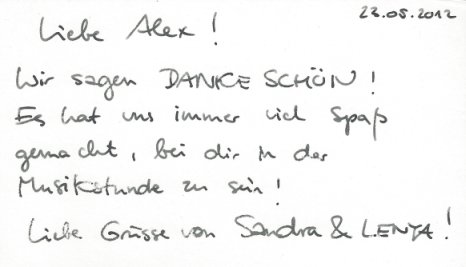 23.05.2012
Liebe Alex!
Wir sagen DANKE SCHÖN!
Es hat uns immer viel Spaß
gemacht, bei dir in der
Musikstunde zu sein!
Liebe Grüsse von Sandra & LENYA!